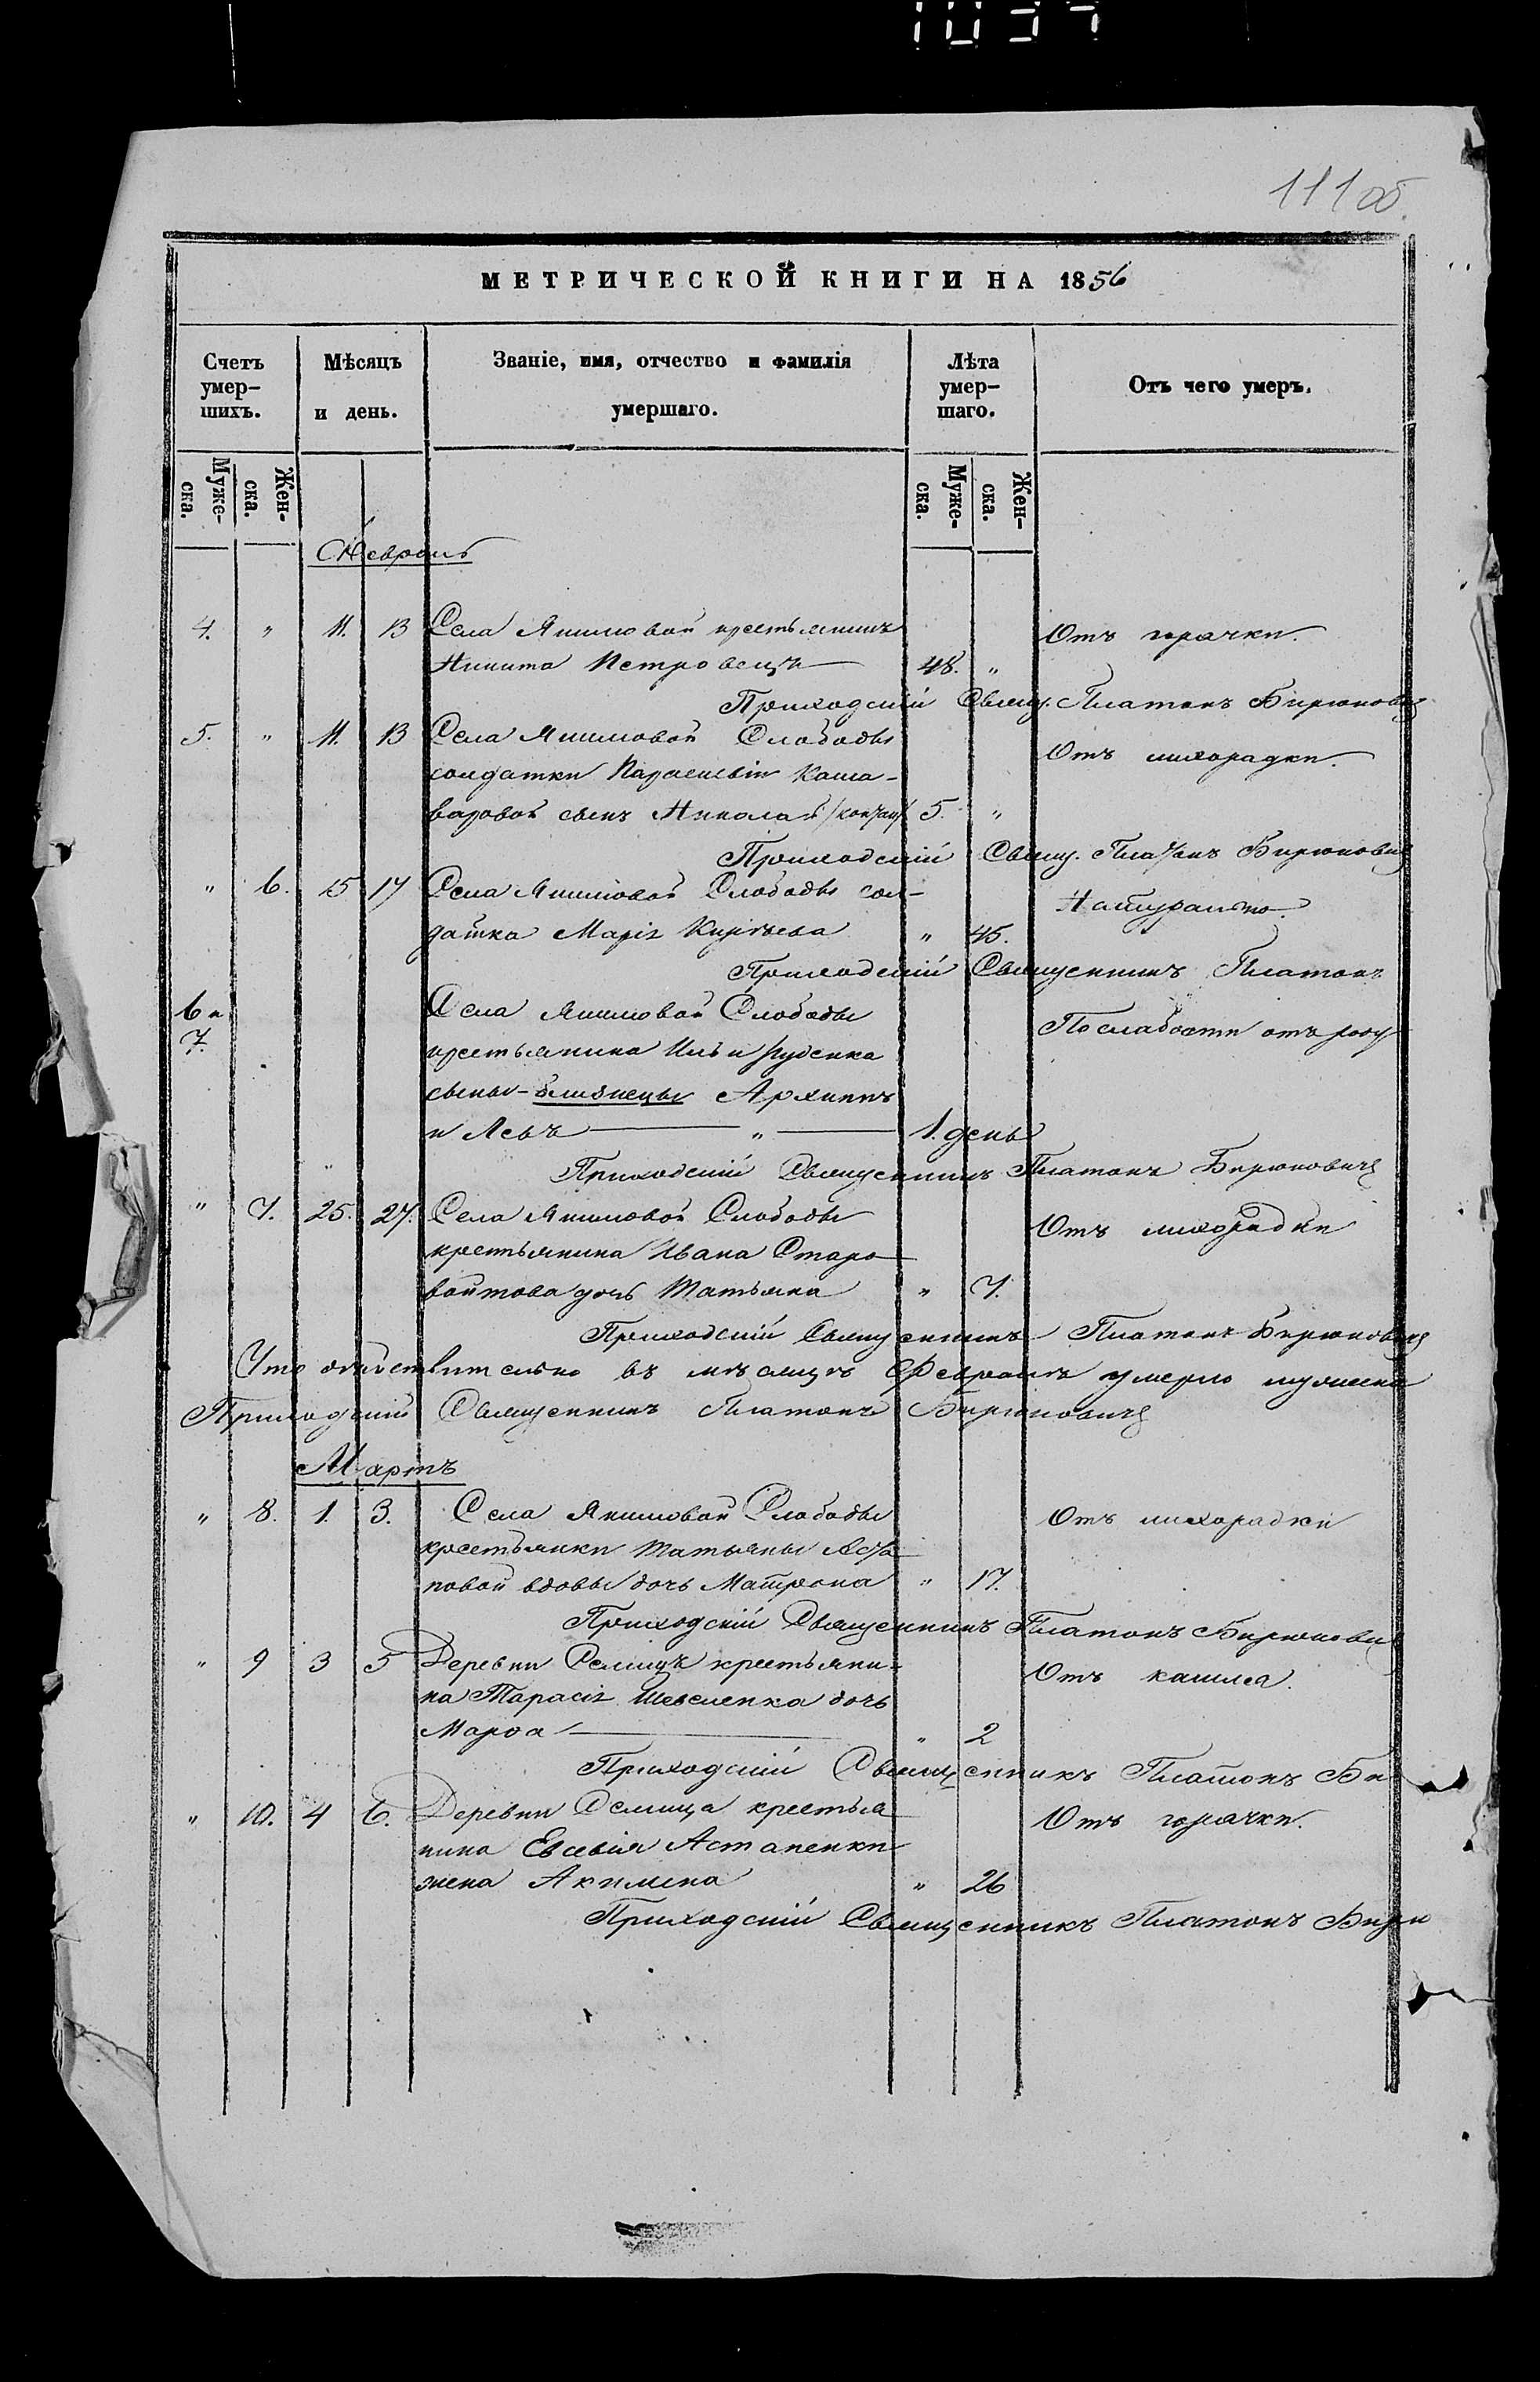 111 об.
МЕТРИЧЕСКОЙ КНИГИ НА 1856
Счетъ умер-шихъ.
Мѣсяцъ и день.
Званіе, имя, отчество и фамилія умершаго.
Лѣта умер-шаго.
Отъ чего умеръ.
Муже-ска. Жен-ска.
Муже-ска. Жен-ска.
Февраль
4. " 11. 13 Села Якимовой крестьянинъ Отъ горячки.
Никита 48. "
Приходскій Свящ. Платонъ Бирюкович
5. " 11. 13 Села Якимовой Слободы Отъ лихорадки.
солдатки Параскевіи Каша-
варовой сынъ Николай 5. "
Приходскій Свящ. Платонъ Бирюкович
" 6. 15 17 Села Якимовой Слободы сол- Натурально.
датка Марія " 45.
Приходскій Священникъ Платонъ
6 и Села Якимовой Слободы По слабости отъ роду
7. крестьянина Ильи Руденка
сыны-близнецы Архипъ
и Левъ " 1. день
Приходскій Священникъ Платонъ Бирюковичъ
" 7. 25. 27. Села Якимовой Слободы Отъ лихорадки
крестьянина Ивана Старо
войтова дочь Татьяна " 7.
Приходскій Священникъ Платонъ Бирюковичъ
Что дѣйствительно въ мѣсяцѣ Февралѣ умерло мужеска
Приходскій Священникъ Платонъ Бирюковичъ
Мартъ
" 8. 1. 3. Села Якимовой Слободы Отъ лихорадки
крестьянки Татьяны Аста
повой вдовы дочь Матрона " 17.
Приходскій Священникъ Платонъ Бирюкович
" 9 3 5 Деревни Селищъ крестьяни- Отъ кашля.
на Тарасія дочь
Марѳа " 2
Приходскій Священникъ Платонъ Би
" 10. 4 6. Деревни Селища крестья Отъ горячки.
нина Евсевія Астапенки
жена Акилина " 26
Приходскій Священникъ Платонъ Бирю